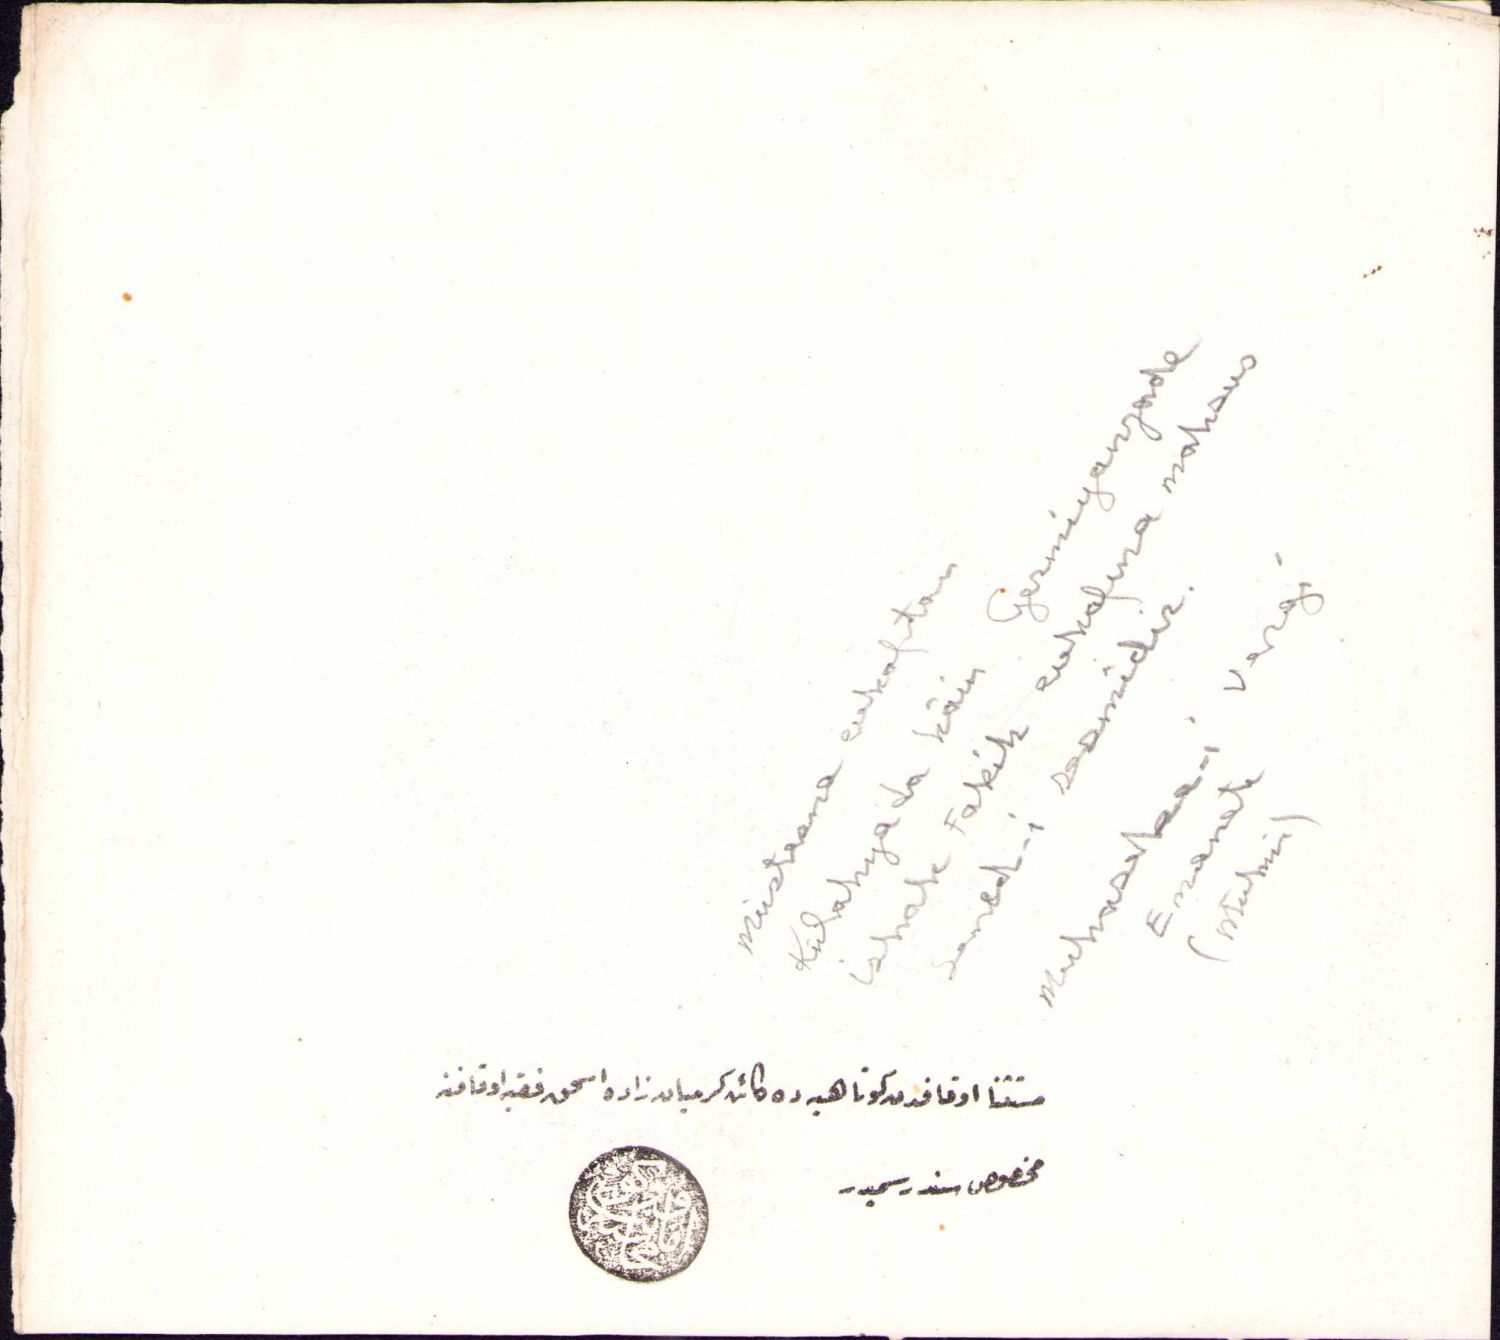 Müstesna evkaftan
Kütahyada kâin Germiyanzade
İshak Fakih evkafına mahsus
Senedi-i resmidir.
Muhasebei-i Vergi
Emanet
(Mühür)
مستثنا اوقافدن كوتاهيه ده كائن كرميان زاده اسحق فقيه اوقافنه
مخصوص سند رسميدر